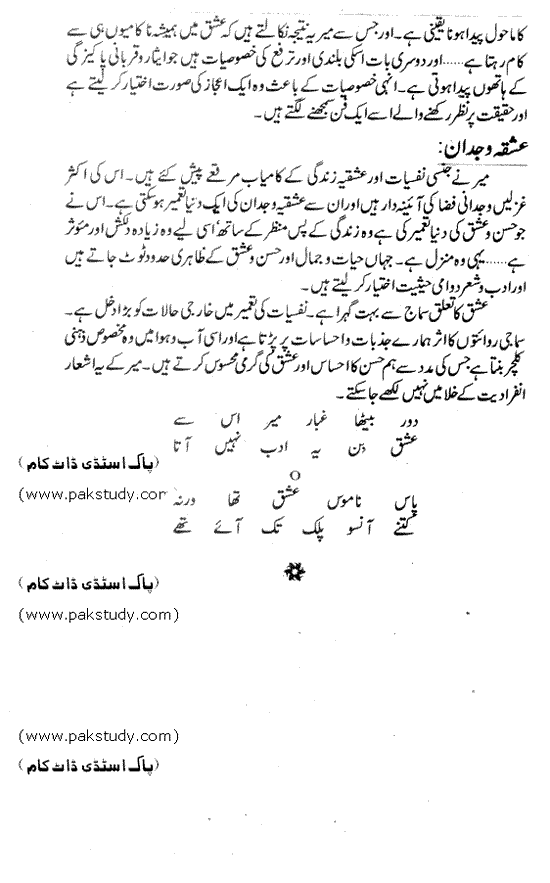 کا ماحول پیدا ہونا یقینی ہے۔ اور جس سے میر یہ نتیجہ نکالتے ہیں کہ عشق میں ہمیشہ ناکامیوں ہی سے
کام رہتا ہے.....اور دوسری بات اسکی بلندی اور ترفع کی خصوصیات ہیں جو ایثار و قربانی پاکیزگی
کے ہاتھوں پیدا ہوتی ہے۔ انہی خصوصیات کے باعث وہ ایک اعجاز کی صورت اختیار کر لیتے ہے
اور حقیقت پر نظر رکھنے والے اسے ایک فن سمجھنے لگتے ہیں۔
عشقہ وجدان:
میر نے جنسی نفسیات اور عشقیہ زندگی کے کامیاب مرقعے پیش کئے ہیں۔ اس کی اکثر
غزلیں وجدانی فضا کی آئینہ دار ہیں اور ان سے عشقیہ وجدان کی ایک دنیا تعمیر ہو سکتی ہے۔ اس نے
جو حسن و عشق کی دنیا تعمیر کی ہے وہ زندگی کے پس منظر کے ساتھ' اسی لیے وہ زیادہ دلکش اور مئوثر
ہے.....یہی وہ منزل ہے۔ جہاں حیات و جمال اور حسن و عشق کے ظاہری حدود ٹوٹ جاتے ہیں
اور ادب و شعر دوامی حیثیت اختیار کر لیتے ہیں۔
عشق کا تعلق سماج سے بہت گہرا ہے۔ نفسیات کی تعمیر میں خارجی حالات کو بڑا دخل ہے۔
سماجی روائتوں کا اثر ہمارے جذبات و احساسات پر پڑتا ہے اور اسی آب و ہوا میں وہ مخصوص ذہنی
کلچر بنتا ہے جس کی مدد سے ہم حسن کا احساس اور عشق کی گرمی محسوس کرتے ہیں۔ میر کے یہ اشعار
انفرادیت کے خلا میں نہیں لکھے جا سکتے۔
دور بیٹھا غبار میر اس سے
عشق بن یہ ادب نہیں آتا
(پاک اسٹڈی ڈاٹ کام)
(www.pakstudy.com
پاس ناموس عشق تھا ورنہ
کتنے آنسو پلک تک آئے تھے
(پاک اسٹڈی ڈاٹ کام)
(www.pakstudy.com)
(www.pakstudy.com)
(پاک اسٹڈی ڈاٹ کام)